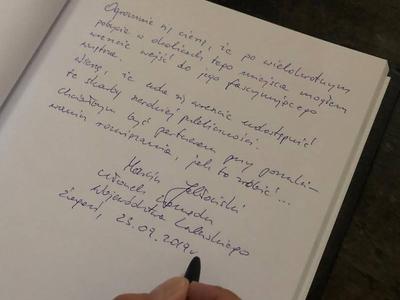 Ogromnie się cieszę, że po wielokrotnym
pobycie w okolicach tego miejsca mogłem
wreszcie wejść do jego fascynującego
wnętrza.
Wierzę, że uda się wreszcie udostępnić
te skarby szerokiej publiczności.
Chciałbym być partnerem przy poszuki-
waniu rozwiązania, jak to zrobić...
Marcin Jabłoński
Członek Zarządu
Województwa Lubuskiego
Żagań, 23.09.2019 r